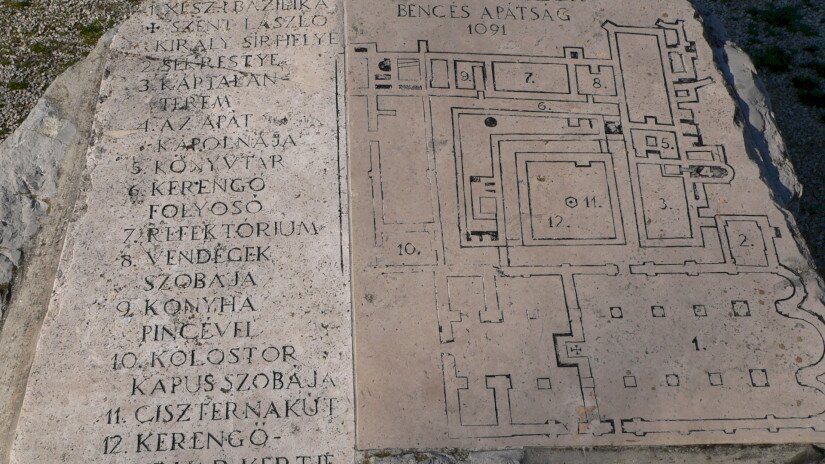 1. RÉSZ: BAZILIKA
✠ SZENT LÁSZLÓ
KIRÁLY SÍRHELYE
2. SEKRESTYE
3. KÁPTALAN-
TEREM
4. AZ APÁT
KÁPOLNÁJA
5. KÖNYVTÁR
6. KERENGŐ
FOLYOSÓ
7. REFEKTÓRIUM
8. VENDÉGEK
SZOBÁJA
9. KONYHA
PINCÉVEL
10. KOLOSTOR
KAPUS SZOBÁJA
11. CISZTERNAKÚT
12. KERENGŐ-
KERTJE
BENCÉS APÁTSÁG
1091
9.
7.
8.
6.
5.
11.
12.
3.
10.
2.
1.